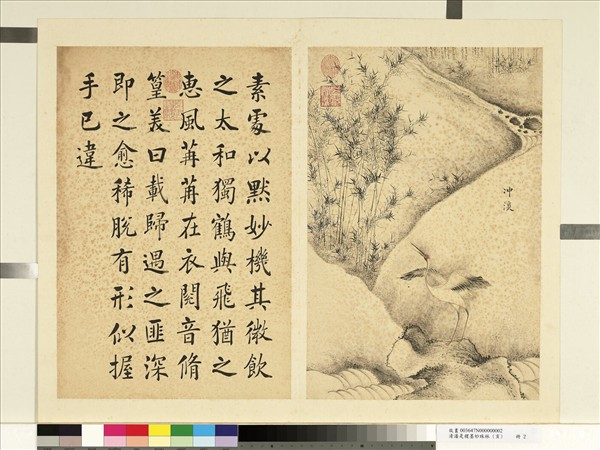 素處以默妙機其微飲
之太和獨鶴與飛猶之
恵風苒苒在衣閱音脩
篁美曰載歸遇之匪深
即之愈稀脫有形似握
手已違
冲淡
故畫 003647N000000002
清潘是稷墨妙珠林（亥） 冊 2